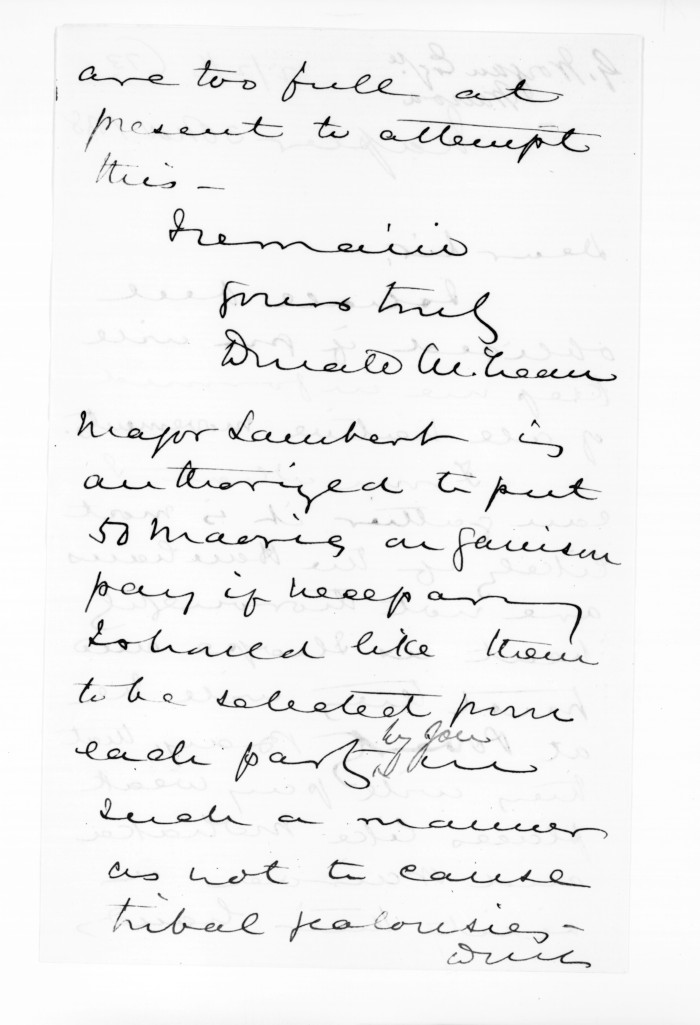 are too full at
present to attempt
this –
I remain
Yours truly
Donald McLean
Major Lambert is
authorized to put
50 Maories on garrison
pay if necessary
I should like them
to be selected from
each party by you in
such a manner
as not to cause
tribal jealousies –
DMcL